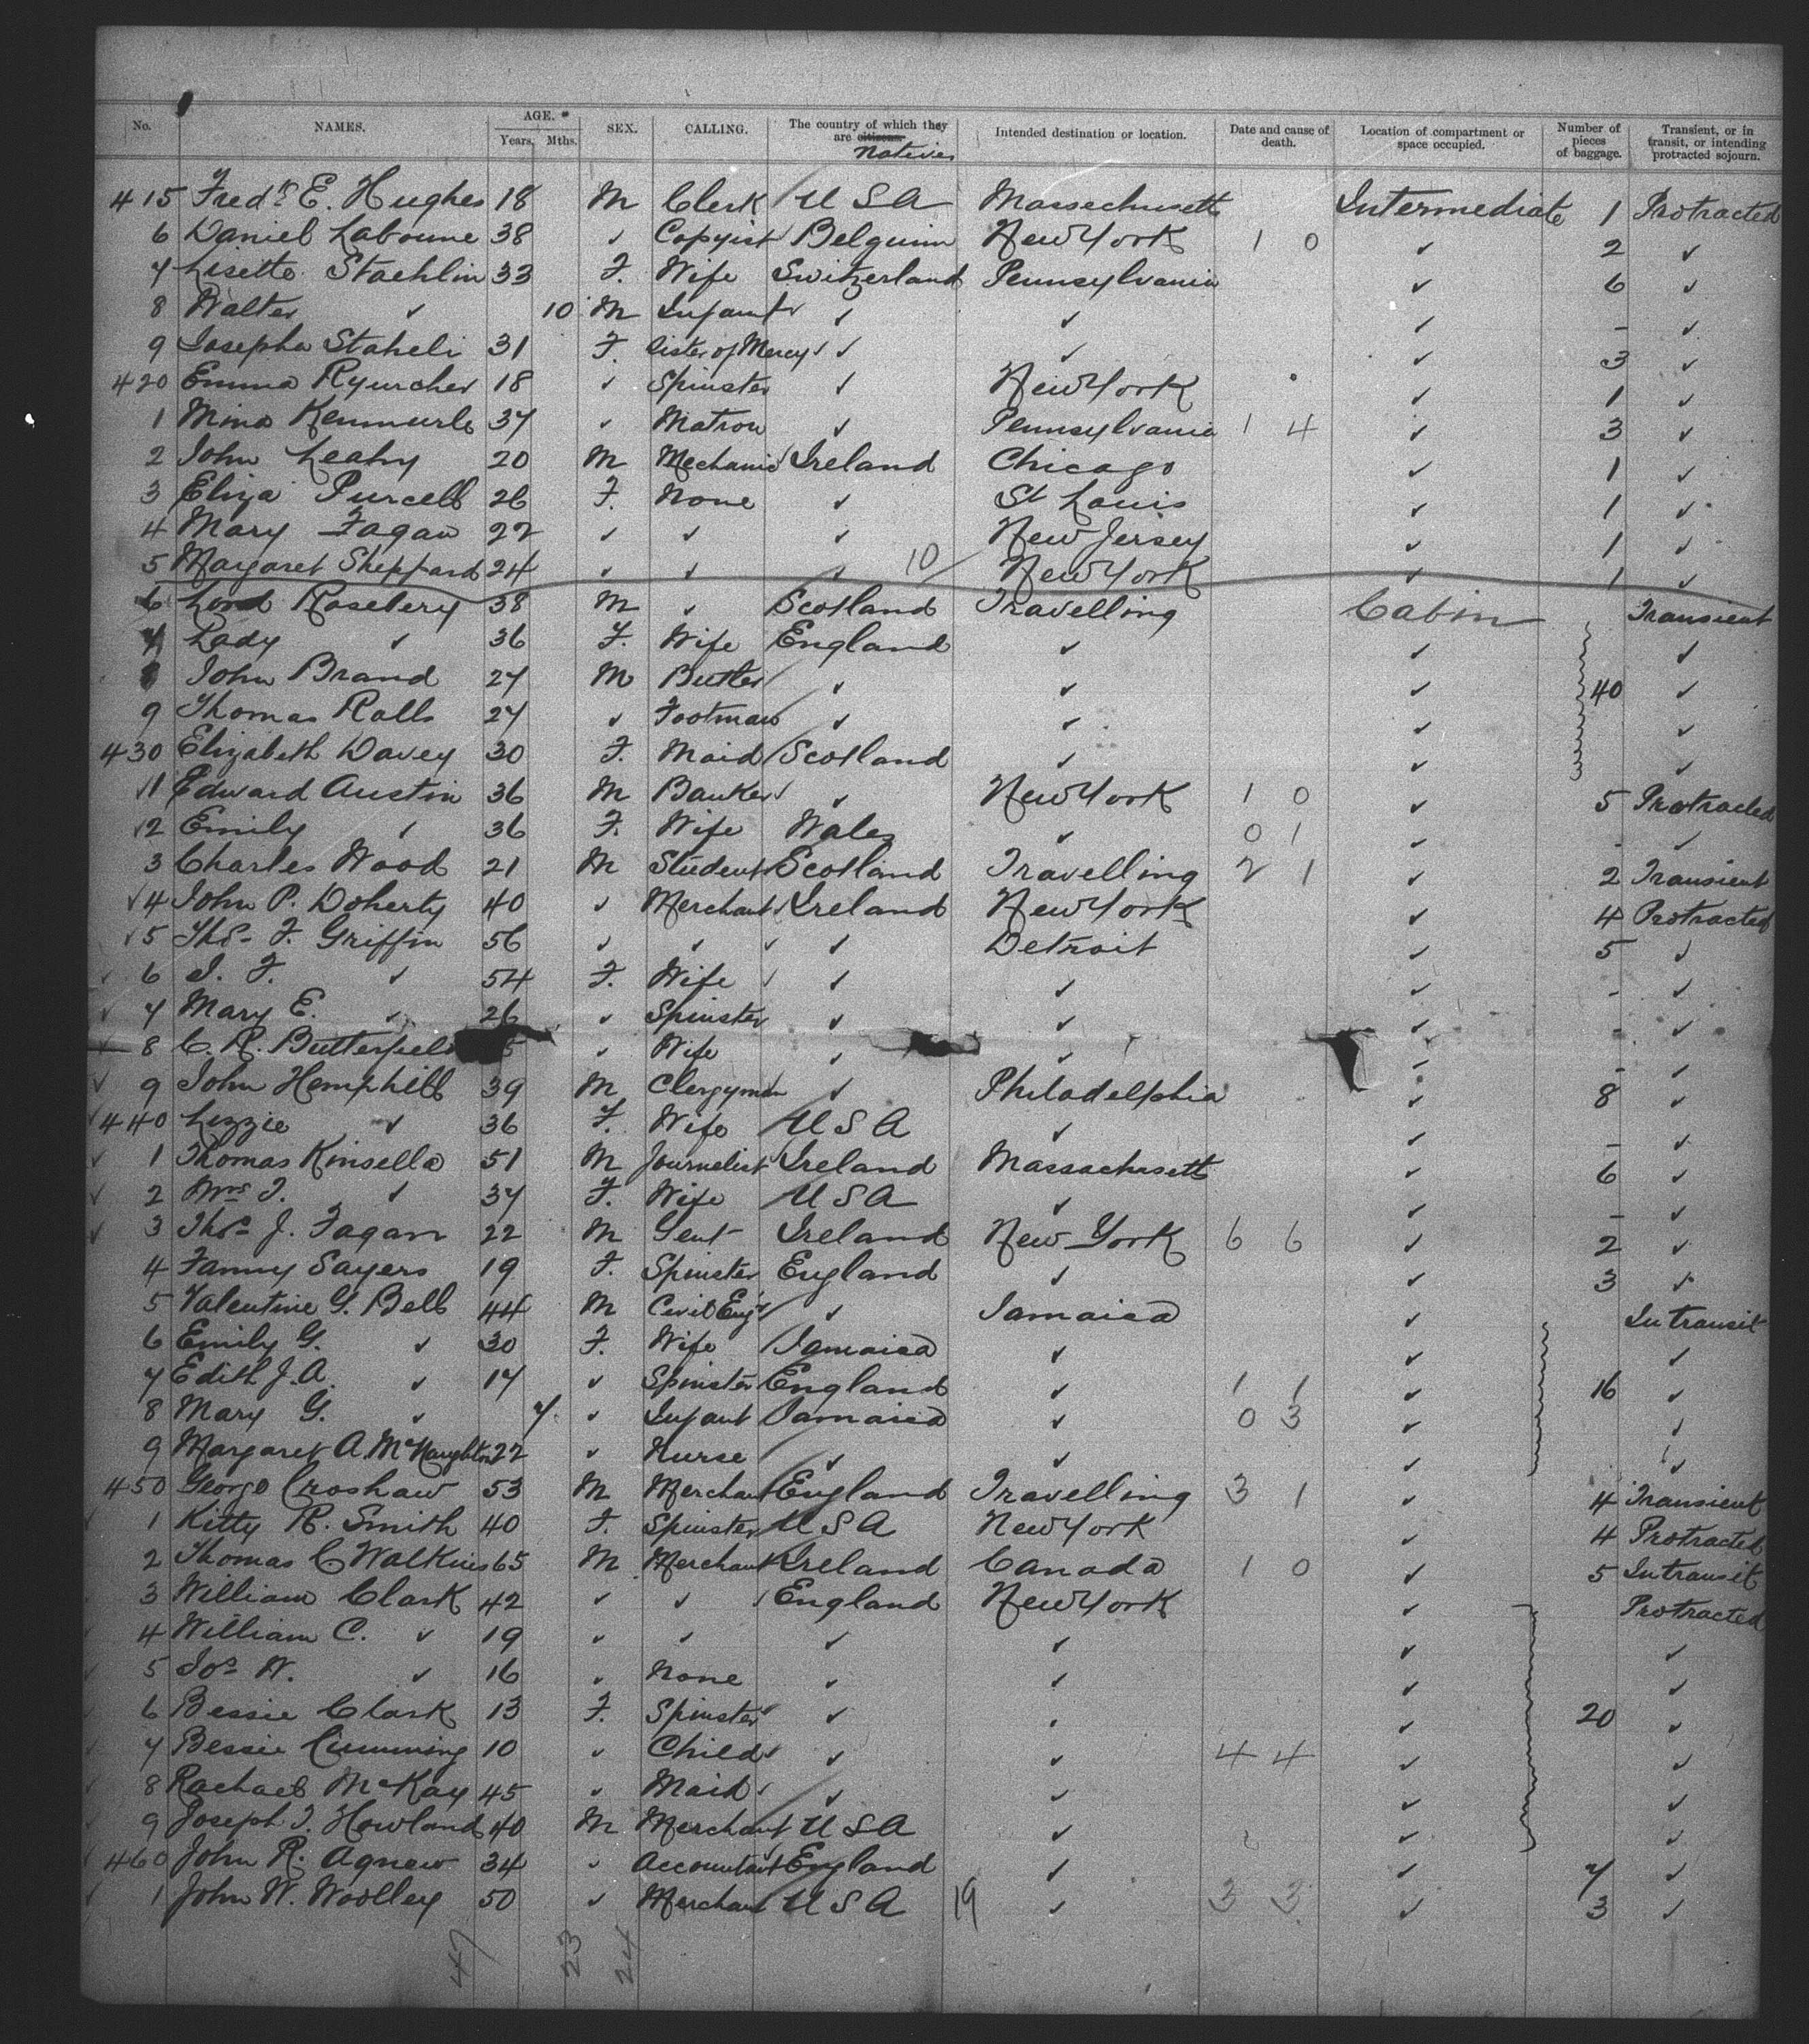 No. NAMES. AGE. * Years. Mths. SEX. CALLING. The country of which they are citizens. Natives Intended destination or location. Date and cause of death. Location of compartment or space occupied. Number of pieces of baggage. Transient, or in transit, or intending protracted sojourn.
415 Fredk E. Hughes 18 M Clerk U S A Massachusetts Intermediate 1 Protracted
6 Daniel Laboune 38 ✓ Copyist Belguim New York 1 0 ✓ 2 ✓
7 Lisette Staehlin 33 F. Wife Switzerland Pennsylvania ✓ 6 ✓
8 Walter ✓ 10 M Infant ✓ ✓ ✓ - ✓
9 Josepha Staheli 31 F. Sister of Mercy ✓ ✓ ✓ 3 ✓
420 Emma Ryurcher 18 ✓ Spinster ✓ New York ✓ 1 ✓
1 Mina 37 ✓ Matron ✓ Pennsylvania 1 4 ✓ 3 ✓
2 John Leahy 20 M Mechanic Ireland Chicago ✓ 1 ✓
3 Eliza Purcell 26 F. None ✓ St Louis ✓ 1 ✓
4 Mary Fagan 22 ✓ ✓ ✓ New Jersey ✓ 1 ✓
5 Margaret Sheppard 24 ✓ ✓ ✓ 10 New York ✓ 1 ✓
6 Lord Rosebery 38 M ✓ Scotland Travelling Cabin Transient
7 Lady ✓ 36 F. Wife England ✓ ✓ ✓
8 John Brand 27 M Butler ✓ ✓ ✓ 40 ✓
9 Thomas Ralls 27 ✓ Footman ✓ ✓ ✓ ✓
430 Elizabeth Davey 30 F. Maid Scotland ✓ ✓ ✓
✓1 Edward Austin 36 M Banker ✓ New York 1 0 ✓ 5 Protracted
✓2 Emily ✓ 36 F. Wife Wales ✓ 0 1 ✓ - ✓
3 Charles Wood 21 M Student Scotland Travelling 2 1 ✓ 2 Transient
✓4 John P. Doherty 40 ✓ Merchant Ireland New York ✓ 4 Protracted
✓5 Thos F. Griffin 56 ✓ ✓ ✓ Detroit ✓ 5 ✓
✓ 6 J. F. ✓ 54 F. Wife ✓ ✓ ✓ - ✓
✓ 7 Mary E. ✓ 26 ✓ Spinster ✓ ✓ ✓ - ✓
✓ 8 C. R. Butterfield ✓ Wife ✓ ✓ ✓ - ✓
✓ 9 John Hemphill 39 M Clergyman ✓ Philadelphia ✓ 8 ✓
✓ 440 Lizzie ✓ 36 F. Wife U S A ✓ ✓ - ✓
✓ 1 Thomas Kinsella 51 M Journalist Ireland Massachusetts ✓ 6 ✓
✓ 2 Mrs T. ✓ 37 F. Wife U S A ✓ ✓ - ✓
✓ 3 Thos J. Fagan 22 M Gent Ireland New York 6 6 ✓ 2 ✓
4 Fanny Sayers 19 F. Spinster England ✓ ✓ 3 ✓
5 Valentine G. Bell 44 M Civil Engr ✓ Jamaica ✓ In transit
6 Emily G. ✓ 30 F. Wife Jamaica ✓ ✓ ✓
7 Edith J. A. ✓ 14 ✓ Spinster England ✓ 1 1 ✓ 16 ✓
8 Mary G. ✓ 7 ✓ Infant Jamaica ✓ 0 3 ✓ ✓
9 Margaret A. McNaughton 22 ✓ Nurse ✓ ✓ ✓ ✓
450 George Croshaw 53 M Merchant England Travelling 3 1 ✓ 4 Transient
1 Kitty R. Smith 40 F. Spinster U S A New York ✓ 4 Protracted
2 Thomas C Walkins 65 M Merchant Ireland Canada 1 0 ✓ 5 In transit
3 William Clark 42 ✓ ✓ England New York ✓ Protracted
4 William C. ✓ 19 ✓ ✓ ✓ ✓ ✓ ✓
5 Jos W. ✓ 16 ✓ None ✓ ✓ ✓ ✓
6 Bessie Clark 13 F. Spinster ✓ ✓ ✓ 20 ✓
7 Bessie Cumming 10 ✓ Child ✓ ✓ 4 4 ✓ ✓
8 Rachael McKay 45 ✓ Maid ✓ ✓ ✓ ✓
9 Joseph T. Howland 40 M Merchant U S A ✓ ✓ ✓
460 John R. Agnew 34 ✓ Accountant England ✓ ✓ 7 ✓
1 John W. Woolley 50 ✓ Merchant U S A 19 ✓ 3 3 ✓ 3 ✓
47 23 24